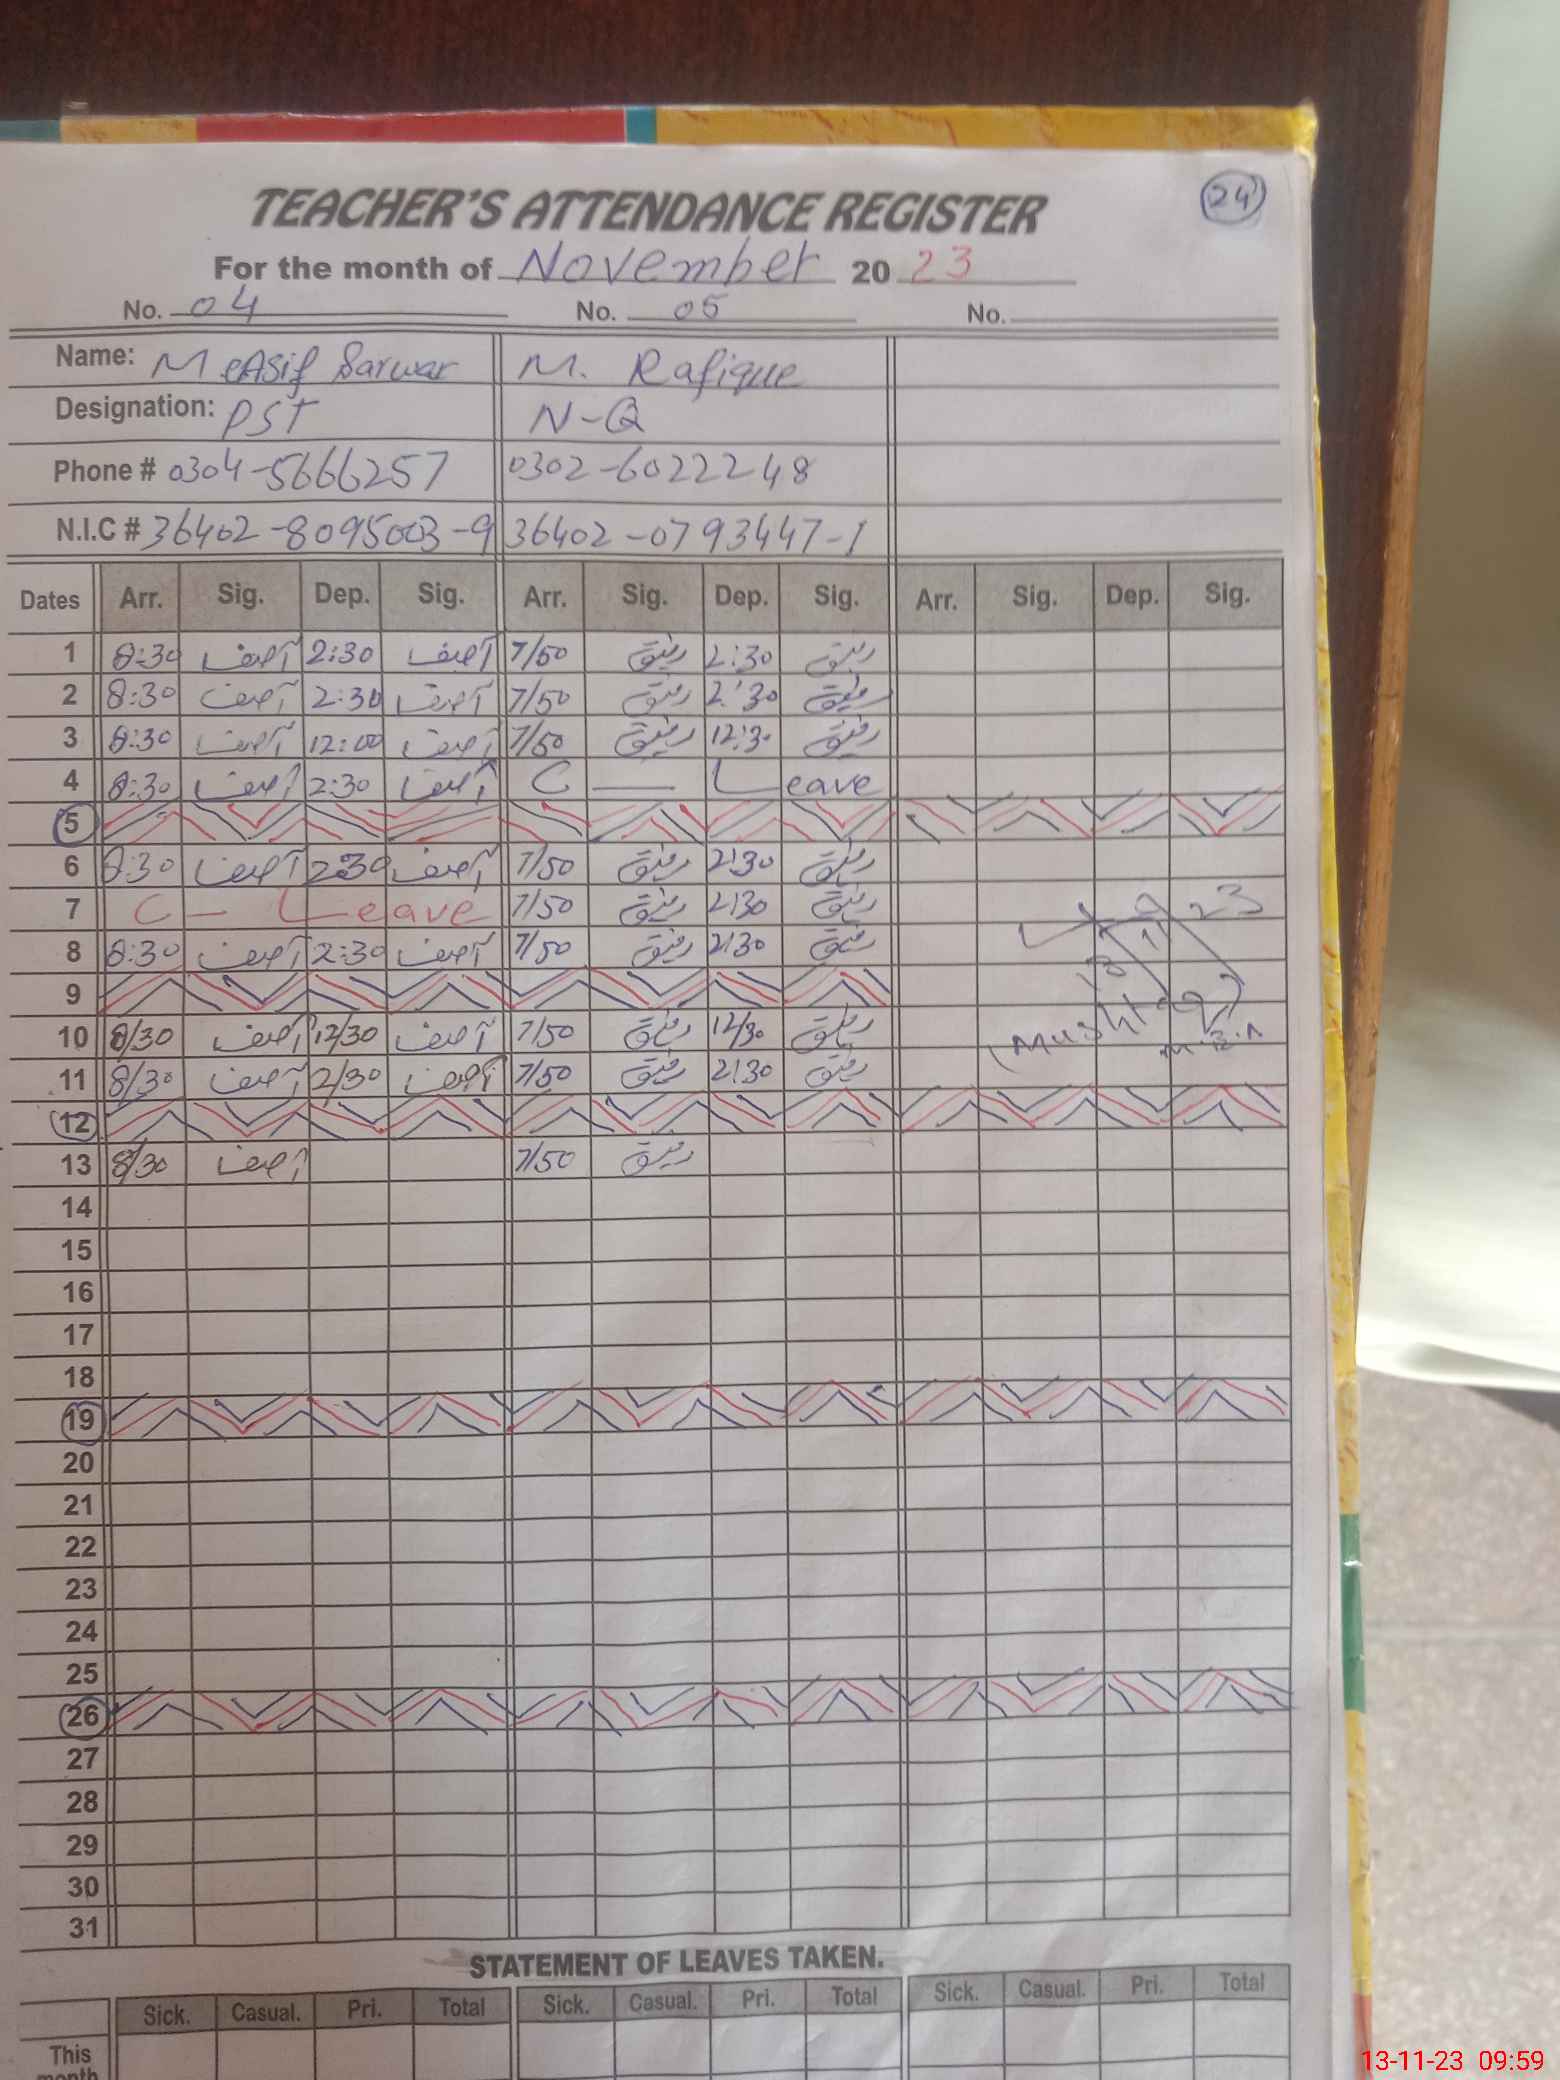 TEACHER'S ATTENDANCE REGISTER
24
For the month of November 20 23
No. 04 No. 05 No.
Name: M Asif Sarwar M. Rafique
Designation: PST N-Q
Phone # 0304-5666257 0302-6022248
N.I.C # 36402-8095003-9 36402-0793447-1
Dates Arr. Sig. Dep. Sig. Arr. Sig. Dep. Sig. Arr. Sig. Dep. Sig.
1 8:30 آصف 2:30 آصف 7/50 رفیق 2:30 رفیق
2 8:30 آصف 2:30 آصف 7/50 رفیق 2:30 رفیق
3 8:30 آصف 12:00 آصف 7/50 رفیق 12:30 رفیق
4 8:30 آصف 2:30 آصف C — Leave
5
6 8:30 آصف 2:30 آصف 7/50 رفیق 2:30 رفیق
7 C - Leave 7/50 رفیق 2:30 رفیق
8 8:30 آصف 2:30 آصف 7/50 رفیق 2:30 رفیق
9
10 8/30 آصف 12/30 آصف 7/50 رفیق 12/30 رفیق
11 8/30 آصف 2/30 آصف 7/50 رفیق 2:30 رفیق
12
13 8/30 آصف 7/50 رفیق
14
15
16
17
18
19
20
21
22
23
24
25
26
27
28
29
30
31
STATEMENT OF LEAVES TAKEN.
Sick. Casual. Pri. Total Sick. Casual. Pri. Total Sick. Casual. Pri. Total
This
month
13-11-23 09:59